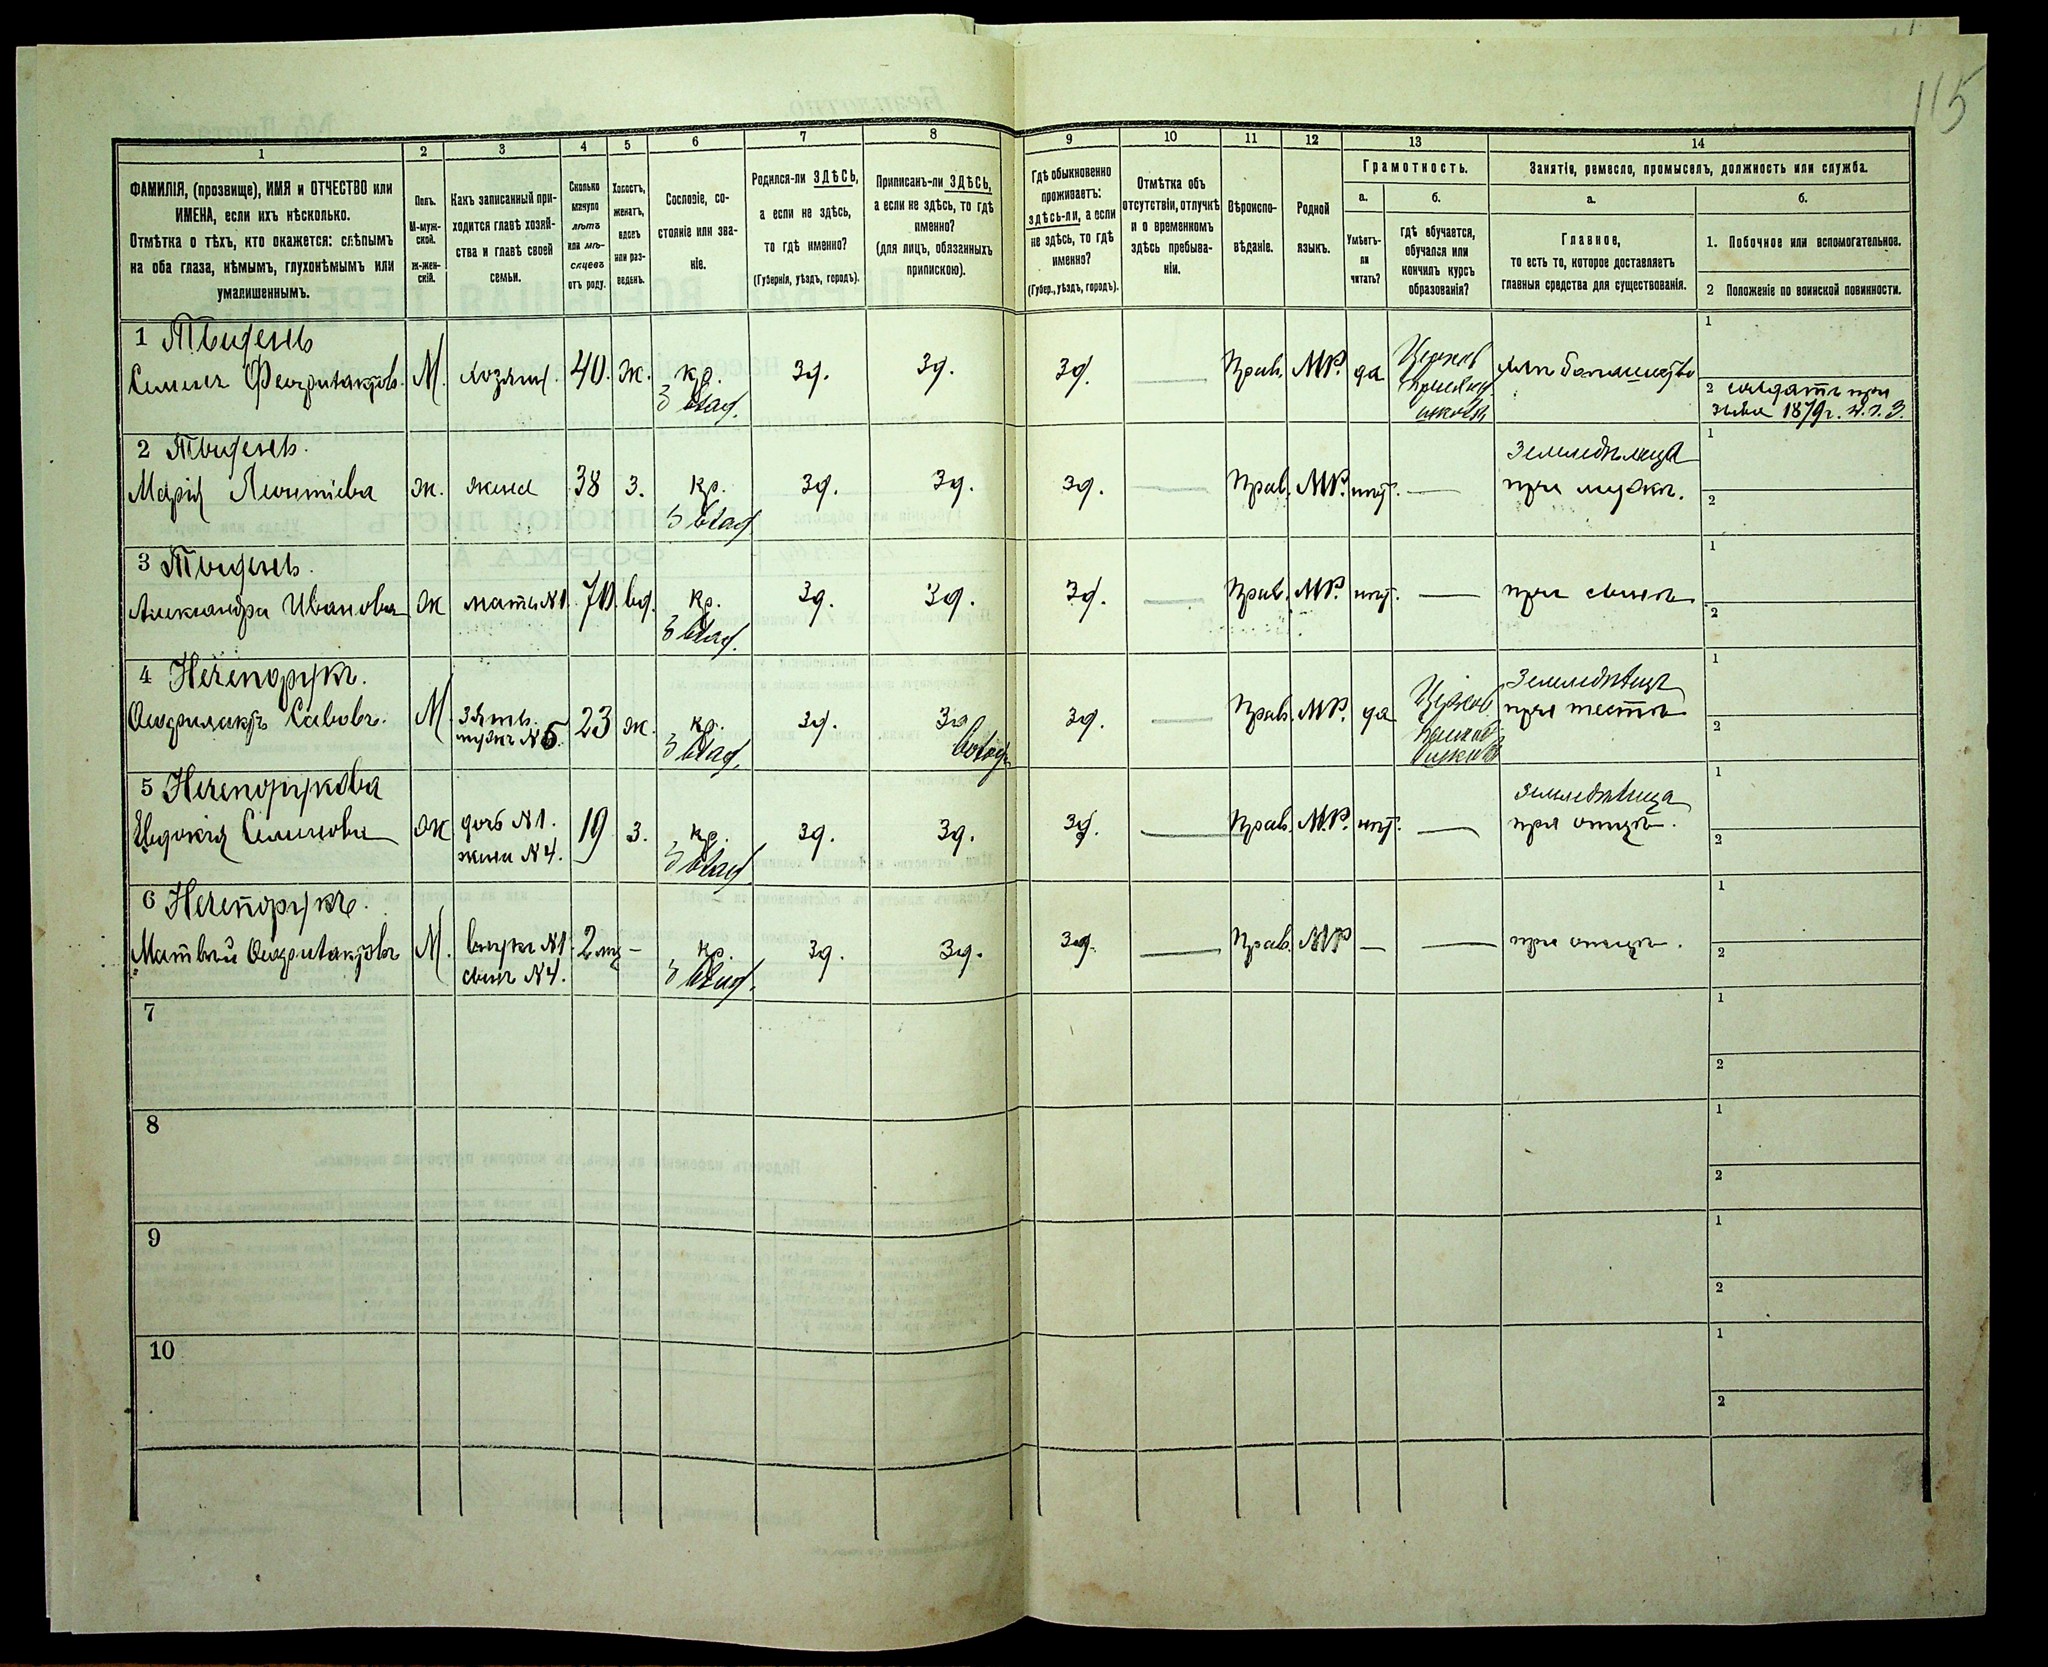 115
1
2
3
4
5
6
7
8
9
10
11
12
13
14
ФАМИЛІЯ, (прозвище), ИМЯ и ОТЧЕСТВО или
ИМЕНА, если ихъ нѣсколько.
Отмѣтка о тѣхъ, кто окажется: слѣпымъ
на оба глаза, нѣмымъ, глухонѣмымъ или
умалишеннымъ.
Полъ.
М-муж-
ской.
ж-жен-
скій.
Какъ записанный при-
ходится главѣ хозяй-
ства и главѣ своей
семьи.
Сколько
минуло
лѣтъ
или мѣ-
сяцевъ
отъ роду.
Холостъ,
женатъ,
вдовъ
или раз-
веденъ.
Сословіе, со-
стояніе или зва-
ніе.
Родился-ли ЗДѢСЬ,
а если не здѣсь,
то гдѣ именно?
(Губернія, уѣздъ, городъ).
Приписанъ-ли ЗДѢСЬ,
а если не здѣсь, то гдѣ
именно?
(для лицъ, обязанныхъ
припискою).
Гдѣ обыкновенно
проживаетъ:
здѣсь-ли, а если
не здѣсь, то гдѣ
именно?
(Губер., уѣздъ, городъ).
Отмѣтка объ
отсутствіи, отлучкѣ
и о временномъ
здѣсь пребыва-
ніи.
Вѣроиспо-
вѣданіе.
Родной
языкъ.
Грамотность.
а.
Умѣетъ-
ли
читать?
б.
гдѣ обучается,
обучался или
кончилъ курсъ
образованія?
Занятіе, ремесло, промыселъ, должность или служба.
а.
Главное,
то есть то, которое доставляетъ
главныя средства для существованія.
б.
1. Побочное или вспомогательное.
2 Положеніе по воинской повинности.
1
Семенъ Феофилактовъ.
М.
хозяин
40.
ж.
кр.
Зд.
Зд.
Зд.
Прав.
МР.
да
Церков
приход
школѣ
1
2 солдатъ при
зыва 1879г.
2
Марія Леонтіева
ж.
жена
38
з.
кр.
Зд.
Зд.
Зд.
Прав.
МР.
нѣт.
—
Земледѣлица
при мужѣ.
1
2
3
Александра Иванова
ж
мать №1
70
вд.
кр.
Зд.
Зд.
Зд.
Прав.
МР.
нѣт.
—
при сынѣ
1
2
4 Нечепорукъ.
Савовъ.
М
зять.
мужъ №5.
23
ж.
кр.
Зд.
Зд.
Прав.
МР.
да
Церков
приход
школѣ
Земледѣлецъ
при тестѣ
1
2
5 Нечепорукова
Евдокія Семенова
ж
дочь №1.
жена №4.
19
з.
кр.
Зд.
Зд.
Зд.
Прав.
М.Р.
нѣт.
—
земледѣлица
при отцѣ.
1
2
6 Нечепорукъ.
Матвѣй
М.
внукъ №1
сынъ №4.
2 мѣ
—
кр.
Зд.
Зд.
Зд.
Прав.
МР
—
—
при отцѣ.
1
2
7
1
2
8
1
2
9
1
2
10
1
2